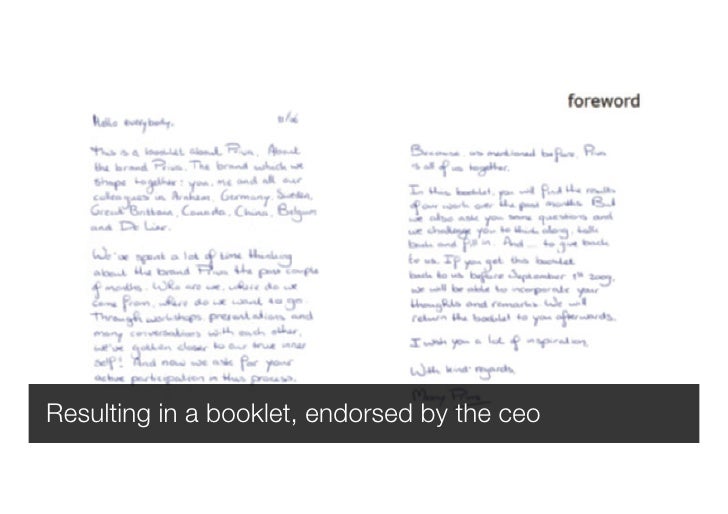 foreword
Hello everybody,
This is a booklet about Priva. About
the brand Priva. The brand which we
shape together: you, me and all our
colleagues in Arnhem, Germany, Sweden,
Great Brittain, Canada, China, Belgium
and De Lier.
We've spent a lot of time thinking
about the brand Priva the past couple
of months. Who are we, where do we
come from, where do we want to go.
Through workshops, presentations and
many conversations with each other,
we've gotten closer to our true inner
self! And now we ask for your
active participation in this process.
Because, as mentioned before, Priva
is all of us together.
In this booklet, you will find the results
of our work over the past months. But
we also ask you some questions and
we challenge you to think along, talk
back and fill in. And... to give back
to us. If you get this booklet
back to us before September 1st 2009,
we will be able to incorporate your
thoughts and remarks. We will
return the booklet to you afterwards.
I wish you a lot of inspiration,
With kind regards,
Resulting in a booklet, endorsed by the ceo